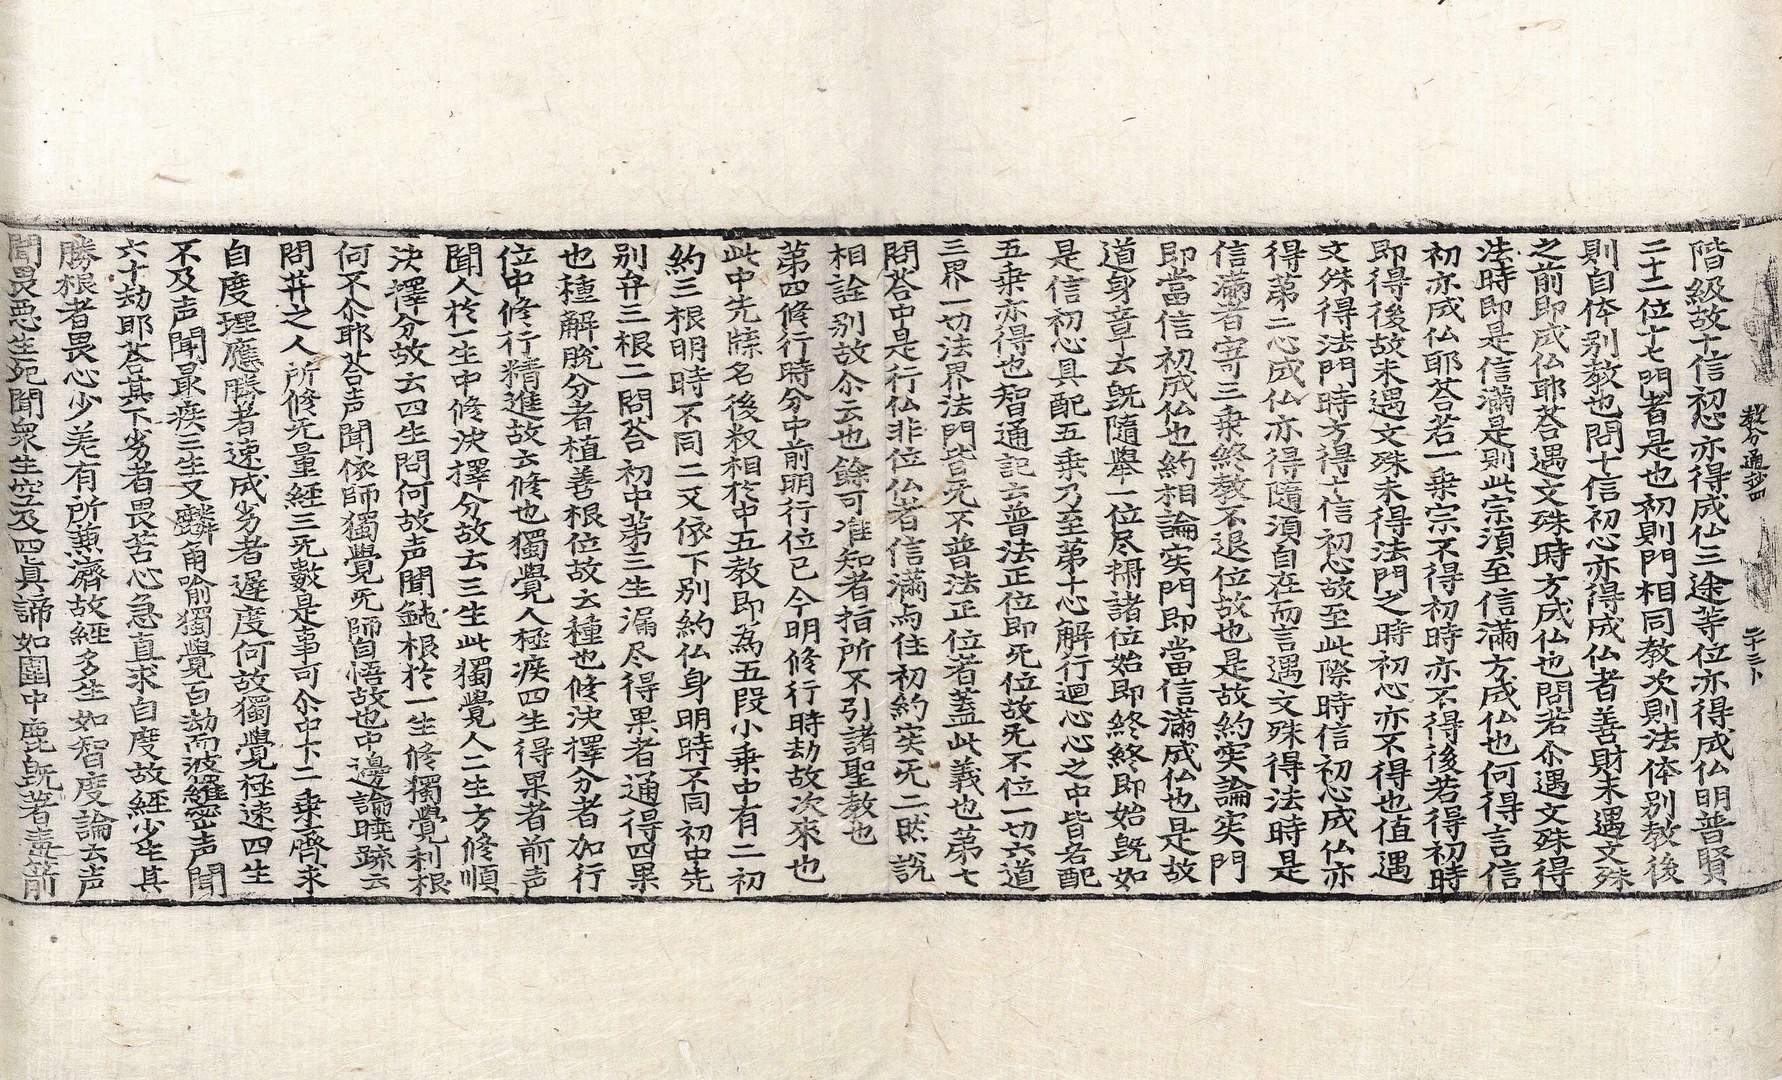 教分通鈔四　二十三卜
階級故十信初心亦得成仏三途等位亦得成仏明普賢
二十二位十七門者是也初則門相同教次則法体別教後
則自体別教也問十信初心亦得成仏者善財未遇文殊
之前即成仏耶荅遇文殊時方成仏也問若尒遇文殊得
法時即是信滿是則此宗湏至信滿方成仏也何得言信
初亦成仏耶荅若一乗宗不得初時亦不得後若得初時
即得後故未遇文殊未得法門之時初心亦不得也值遇
文殊得法門時方得十信初心故至此際時信初心成仏亦
得第二心成仏亦得隨湏自在而言遇文殊得法時是
信滿者寄三乗終教不退位故也是故約宲論宲門
即當信初成仏也約相論宲門即當信滿成仏也是故
道身章云旣隨舉一位尽攝諸位始即終終即始旣如
是信初心具配五乗乃至第十心解行迴心心之中皆各配
五乗亦得也智通記云普法正位即旡位故旡不位一切六道
三界一切法界法門皆旡不普法正位者盖此義也第七
問荅中是行仏非位仏者信滿与住初約宲旡二然說
相詮別故尒云也餘可准知者指所不引諸聖教也
第四修行時分中前明行位已今明修行時劫故次來也
此中先牒名後权相於中五教即為五段小乗中有二初
約三根明時不同二又依下別約仏身明時不同初中先
別弁三根二問荅初中第三生漏尽得果者通得四果
也種解脫分者植善根位故云種也修決擇分者加行
位中修行精進故云修也獨覺人極疾四生得果者前声
聞人於一生中修決擇分故云三生此獨覺人二生方修順
決擇分故云四生問何故声聞鈍根於一生修獨覺利根
何不尒耶荅声聞依師獨覺旡師自悟故也中邊論曉䟽云
問井之人所修旡量經三旡數是事可尒中下二乗齊求
自度理應勝者速成劣者遲度何故獨覺極速四生
不及声聞最疾三生又麟角喻獨覺百劫而波羅蜜声聞
六十劫耶荅其下劣者畏苦心急直求自度故經少生其
勝根者畏心少羗有所𠔥濟故經多生如智度論云声
聞畏惡生死聞衆生空及四眞諦如圍中鹿旣著毒箭